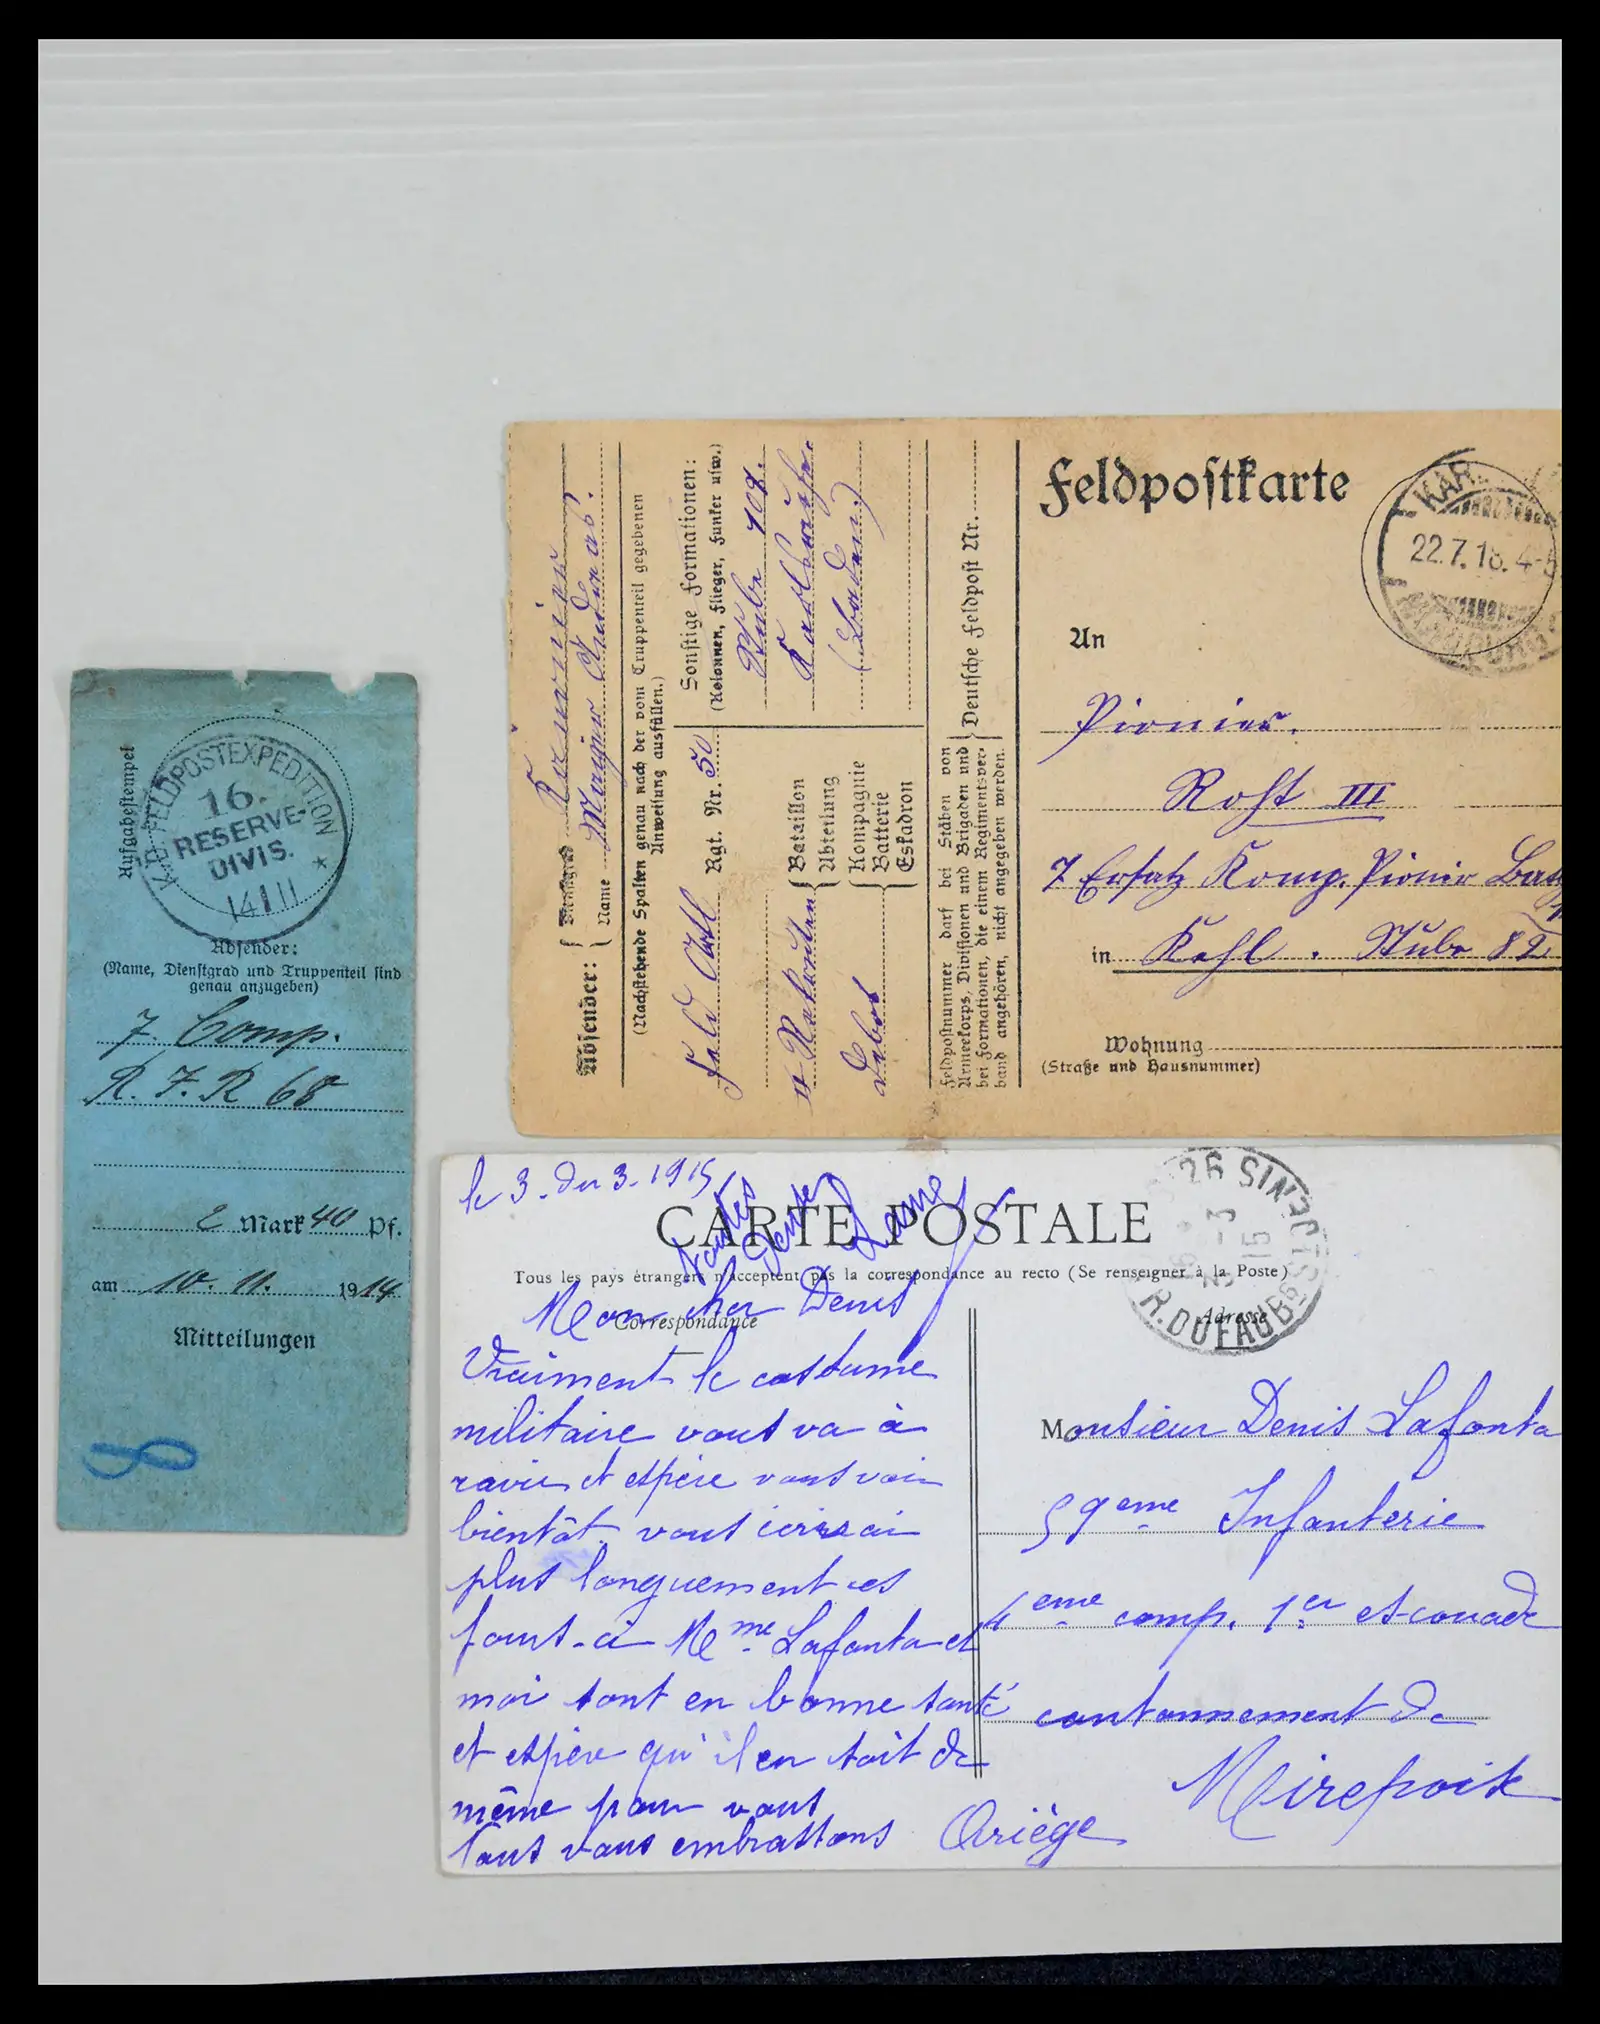 Aufgabestempel
K.D. FELDPOSTEXPEDITION
16.
RESERVE-
DIVIS.
14 11
Absender:
(Name, Dienstgrad und Truppenteil sind
genau anzugeben)
7. Comp.
R. I. R 68
2 Mark 40 Pf.
am 10. 11. 1914
Mitteilungen
Absender:
Dienstgrad
Name
(Nachstehende Spalten genau nach der vom Truppenteil gegebenen
Anweisung ausfüllen.)
Feld Artl Rgt. Nr. 50
Sonstige Formationen:
(Kolonnen, Flieger, Funker usw.)
Stube 108.
Karlsruhe.
(Baden.)
Rekruten
Depot
Bataillon
Abteilung
Kompagnie
Batterie
Eskadron
Feldpostnummer darf bei Stäben von
Armeekorps, Divisionen und Brigaden und
bei Formationen, die einem Regimentsver-
band angehören, nicht angegeben werden.
Deutsche Feldpost Nr.
Feldpostkarte
KAR
22.7.18. 4-5
An
Pionier.
Roht III
7 Ersatz Komp. Pionier
in Kehl. Stube 82
Wohnung
(Straße und Hausnummer)
le 3. du 3. 1915
CARTE POSTALE
Tous les pays étrangers n'acceptent pas la correspondance au recto (Se renseigner à la Poste)
Correspondance
Adresse
R. DU FAUBG ST DENIS 26
3 -3
15
Mon cher Denis
Vraiment le costume
militaire vous va à
ravir et espère vous voir
bientôt vous
plus longuement ces
jours-ci Mme Lafonta et
moi sont en bonne santé
et espère qu'il en soit de
même pour vous
Tous vous embrassons
Monsieur Denis Lafonta
59eme Infanterie
4eme comp. 1er escouade
cantonnement de
Mirepoix
Ariège